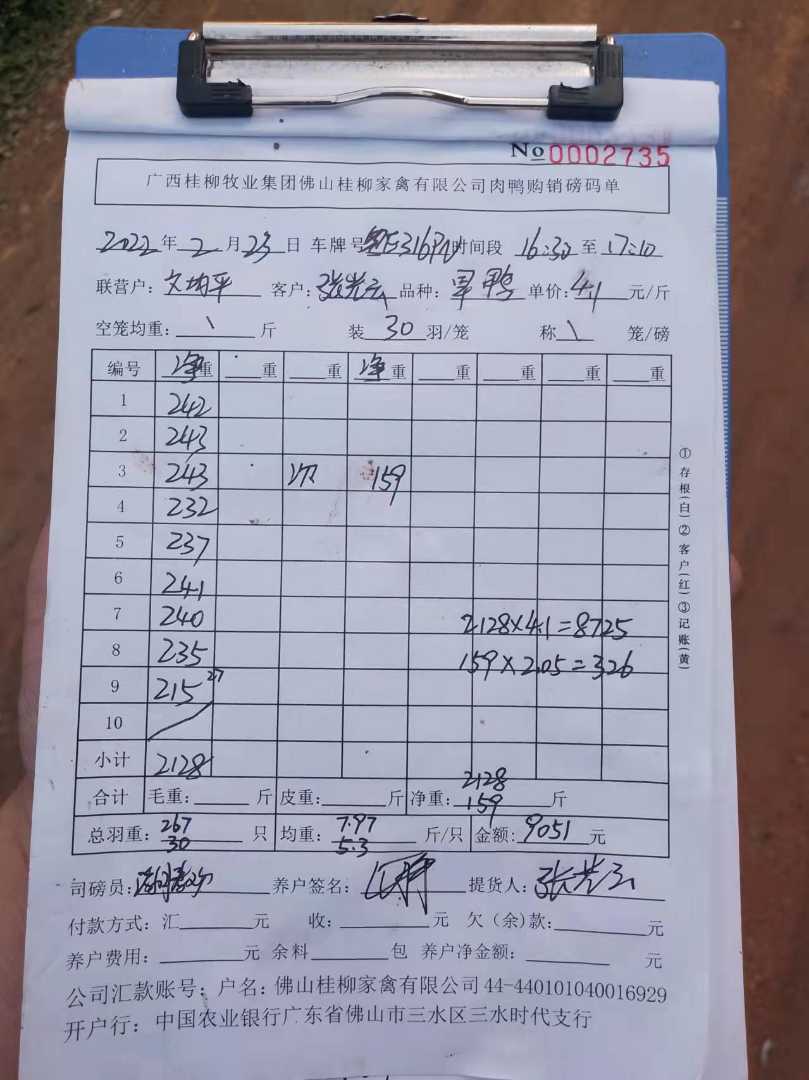 No 0002735
广西桂柳牧业集团佛山桂柳家禽有限公司肉鸭购销磅码单
2022年2月23日 车牌号 E316 时间段 16:30至17:10
联营户：文均平 客户：张光云 品种：旱鸭 单价：4.1元/斤
空笼均重：\斤 装30羽/笼 称\笼/磅
编号 净重 重 重 净重 重 重 重 重
1 242
2 243
3 243 次 159
4 232
5 237
6 241
7 240 2128×4.1=8725
8 235 159×2.05=326
9 215 27
10
小计 2128
合计 毛重：斤 皮重：斤 净重：2128 159 斤
总羽重：267 30 只 均重：7.97 5.3 斤/只 金额：9051元
司磅员： 养户签名： 提货人：张光云
付款方式：汇元 收：元 欠(余)款：元
养户费用：元 余料包 养户净金额：元
公司汇款账号：户名：佛山桂柳家禽有限公司 44-440101040016929
开户行：中国农业银行广东省佛山市三水区三水时代支行
①存根(白)②客户(红)③记账(黄)